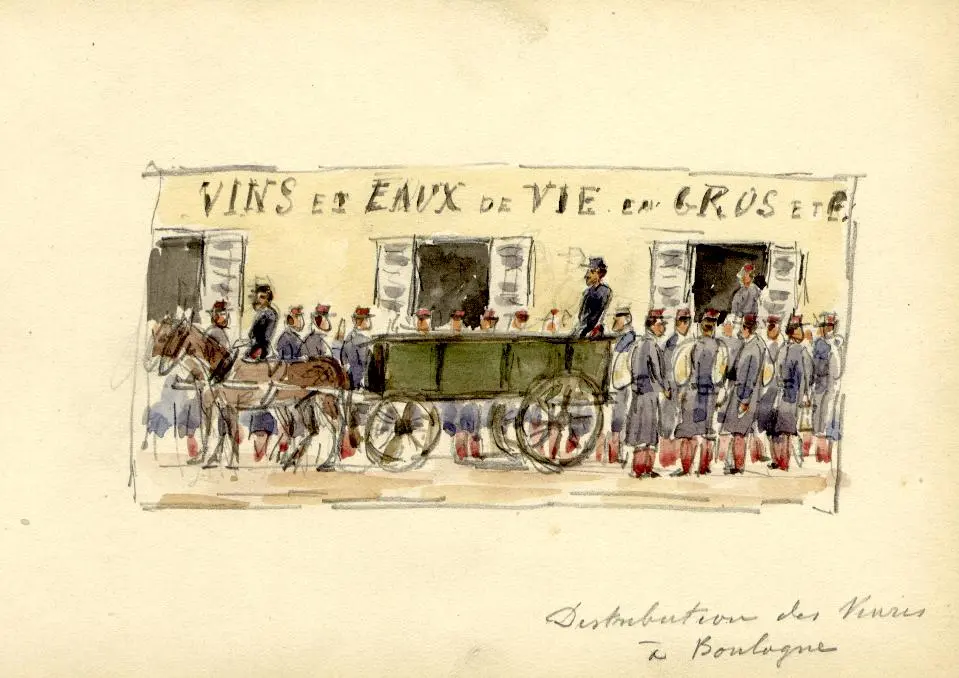 VINS ET EAUX DE VIE EN GROS ET E
Distribution des Vivres
à Boulogne